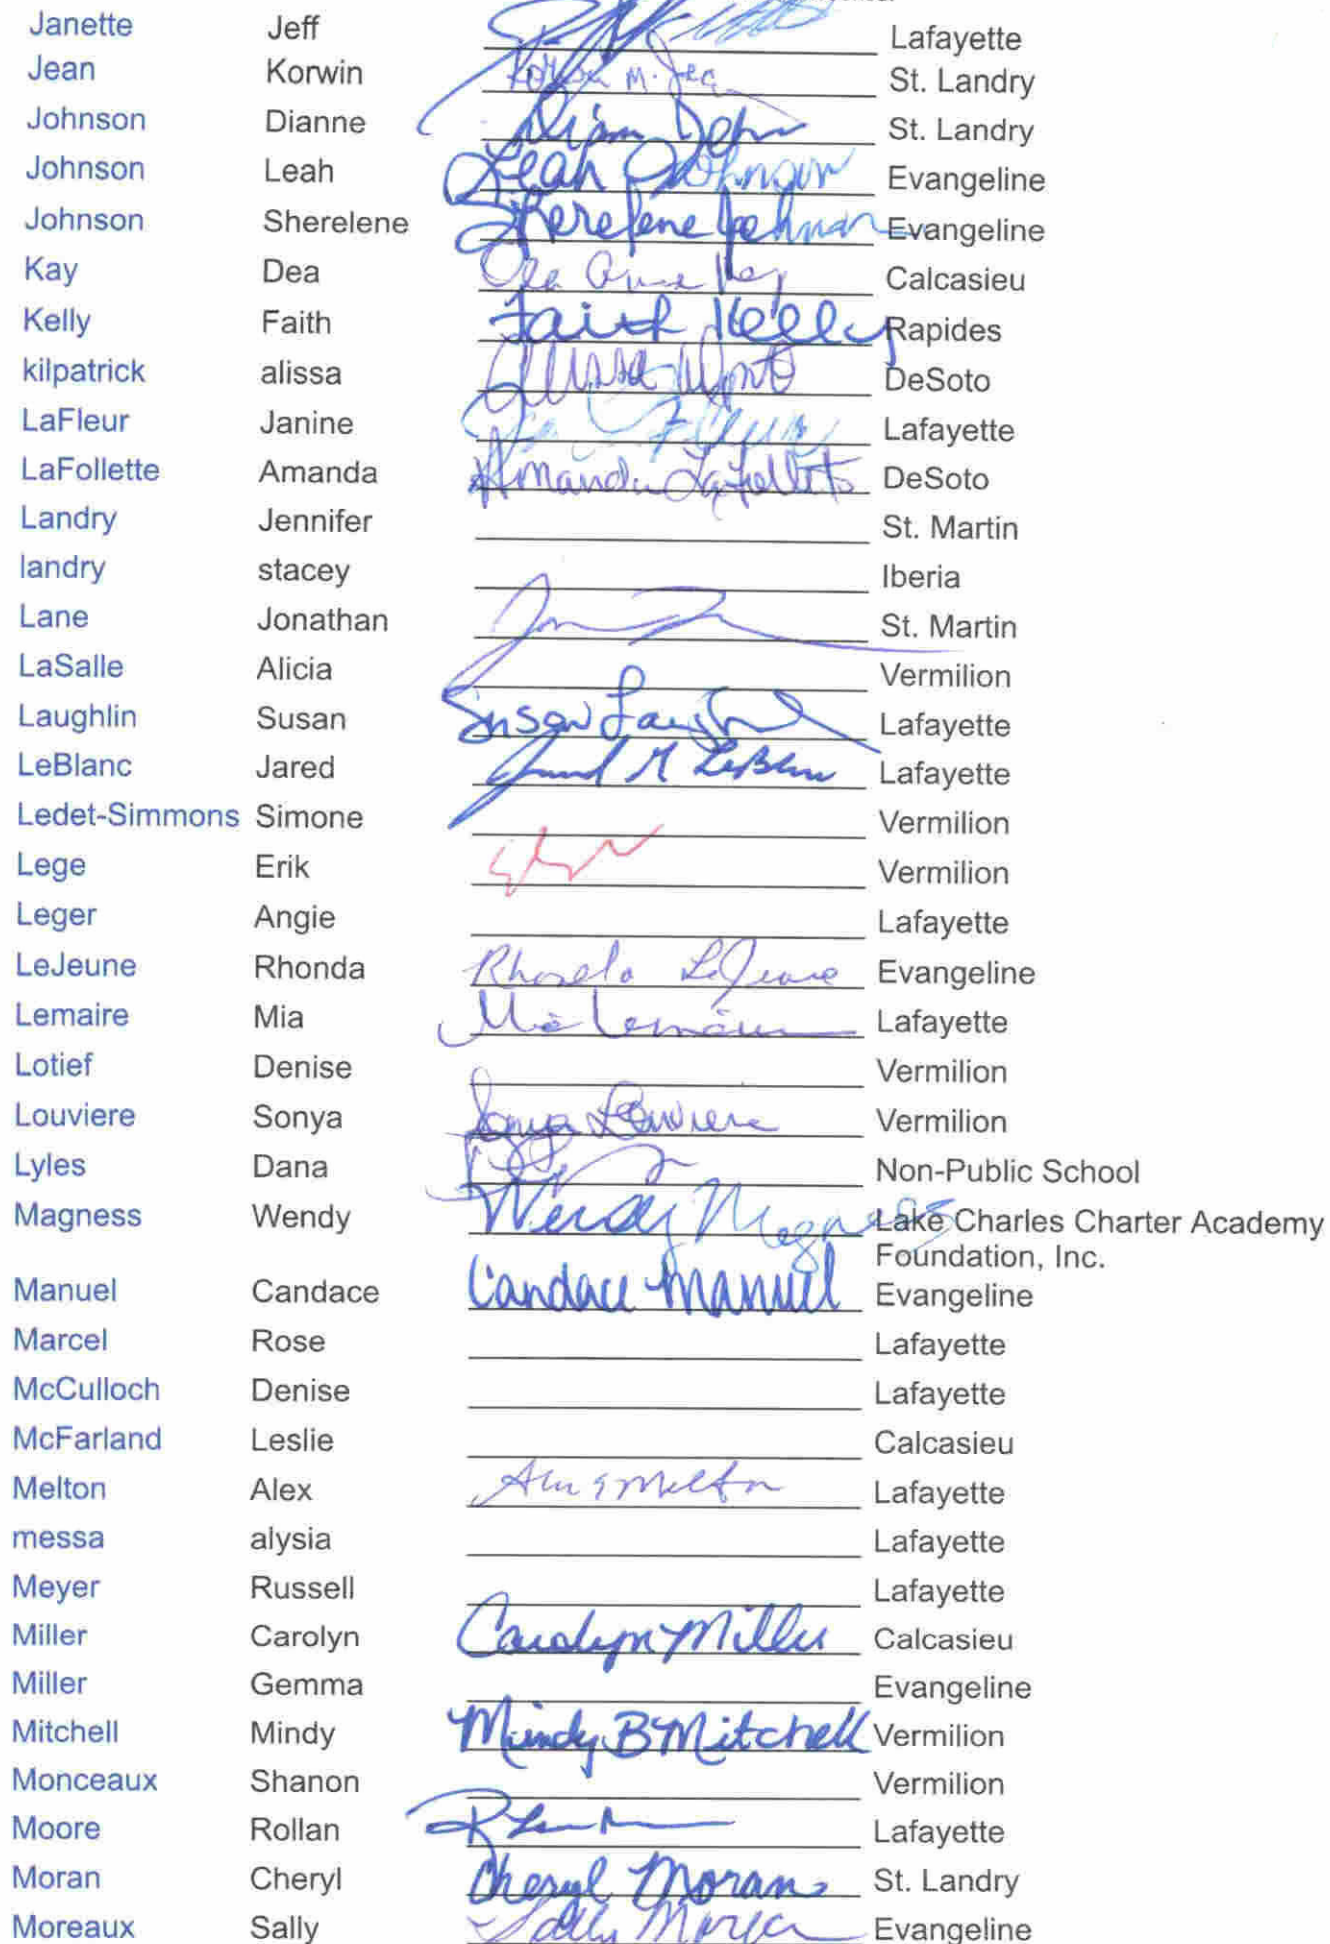 Janette Jeff Lafayette
Jean Korwin Korwin M. Jea St. Landry
Johnson Dianne St. Landry
Johnson Leah Leah Johnson Evangeline
Johnson Sherelene Sherelene Johnson Evangeline
Kay Dea Calcasieu
Kelly Faith Faith Kelly Rapides
kilpatrick alissa DeSoto
LaFleur Janine Lafayette
LaFollette Amanda Amanda LaFollette DeSoto
Landry Jennifer St. Martin
landry stacey Iberia
Lane Jonathan St. Martin
LaSalle Alicia Vermilion
Laughlin Susan Susan Lafayette
LeBlanc Jared Jared M LeBlanc Lafayette
Ledet-Simmons Simone Vermilion
Lege Erik Vermilion
Leger Angie Lafayette
LeJeune Rhonda Rhonda LeJeune Evangeline
Lemaire Mia Mia Lemaire Lafayette
Lotief Denise Vermilion
Louviere Sonya Sonya Louviere Vermilion
Lyles Dana Non-Public School
Magness Wendy Wendy Magness Lake Charles Charter Academy
Foundation, Inc.
Manuel Candace Candace Manuel Evangeline
Marcel Rose Lafayette
McCulloch Denise Lafayette
McFarland Leslie Calcasieu
Melton Alex Melton Lafayette
messa alysia Lafayette
Meyer Russell Lafayette
Miller Carolyn Carolyn Miller Calcasieu
Miller Gemma Evangeline
Mitchell Mindy Mindy B Mitchell Vermilion
Monceaux Shanon Vermilion
Moore Rollan Lafayette
Moran Cheryl Cheryl Moran St. Landry
Moreaux Sally Sally Evangeline